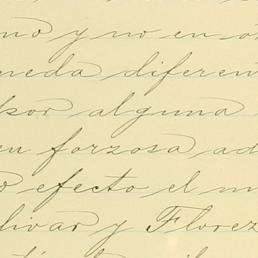 no y no en o
neda diferen
sor alguna
en forzosa ad
o efecto el m
livar y Florez